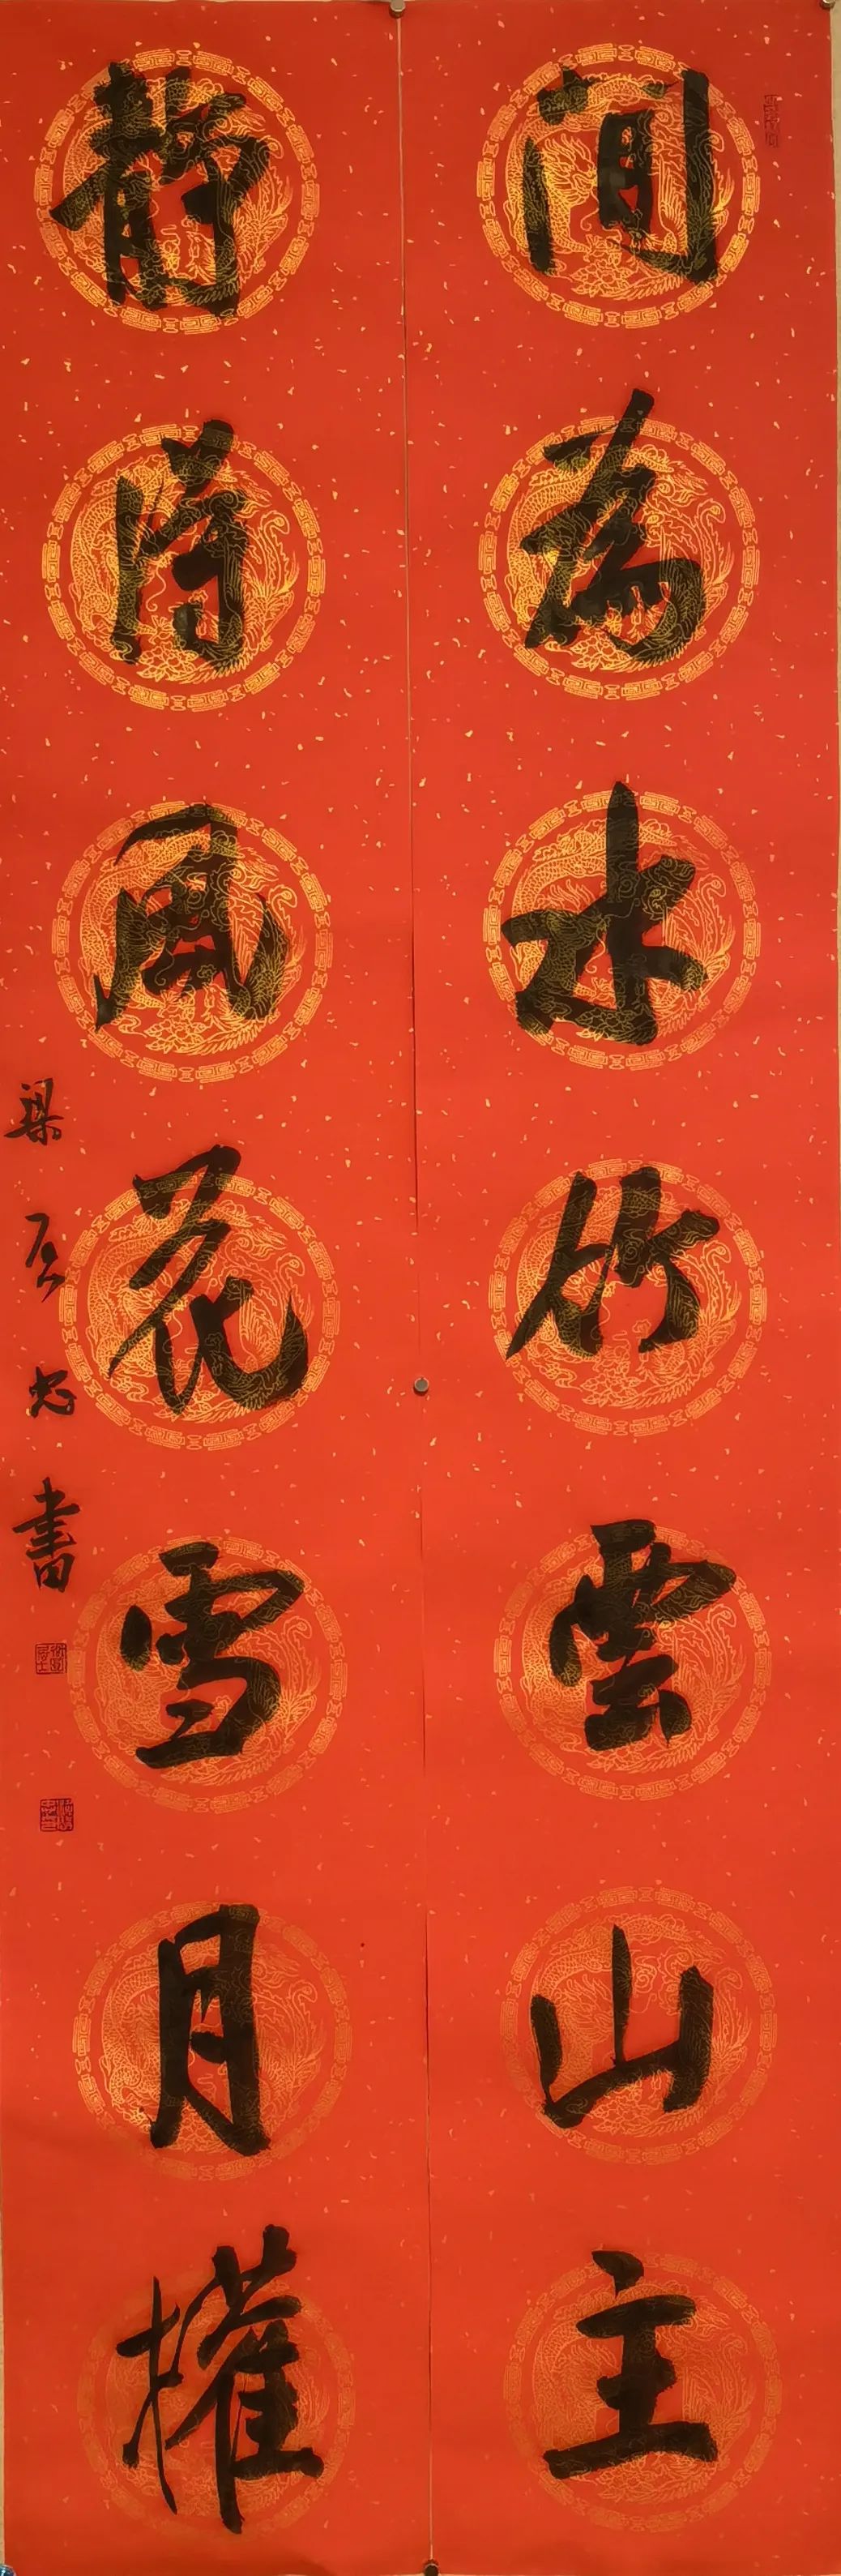 閒為水竹雲山主
静得風花雪月權
梁 忠書